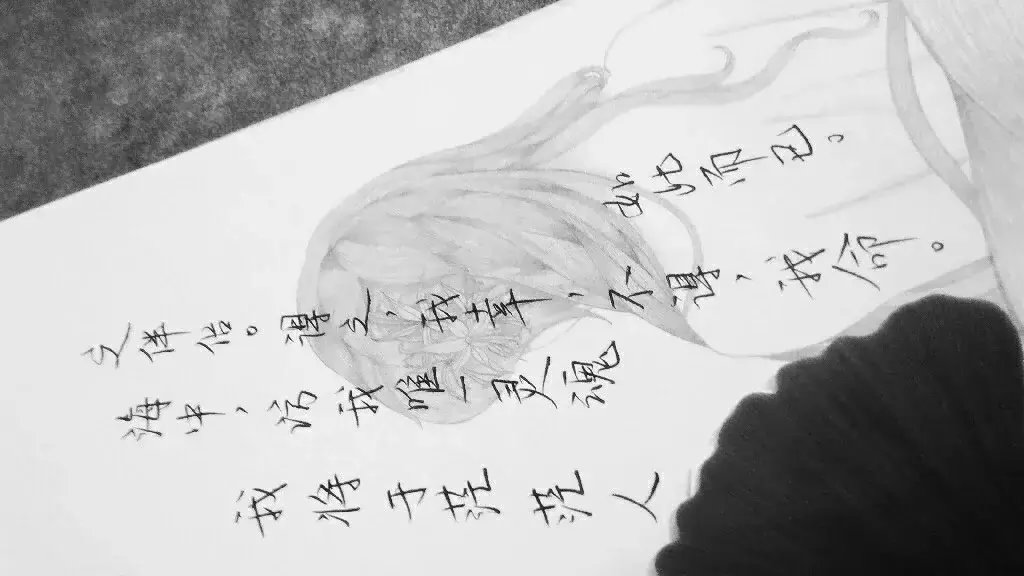 我将于茫茫人
海中，访我唯一灵魂
之伴侣。得之，我幸，不得，我命。
如此而已。